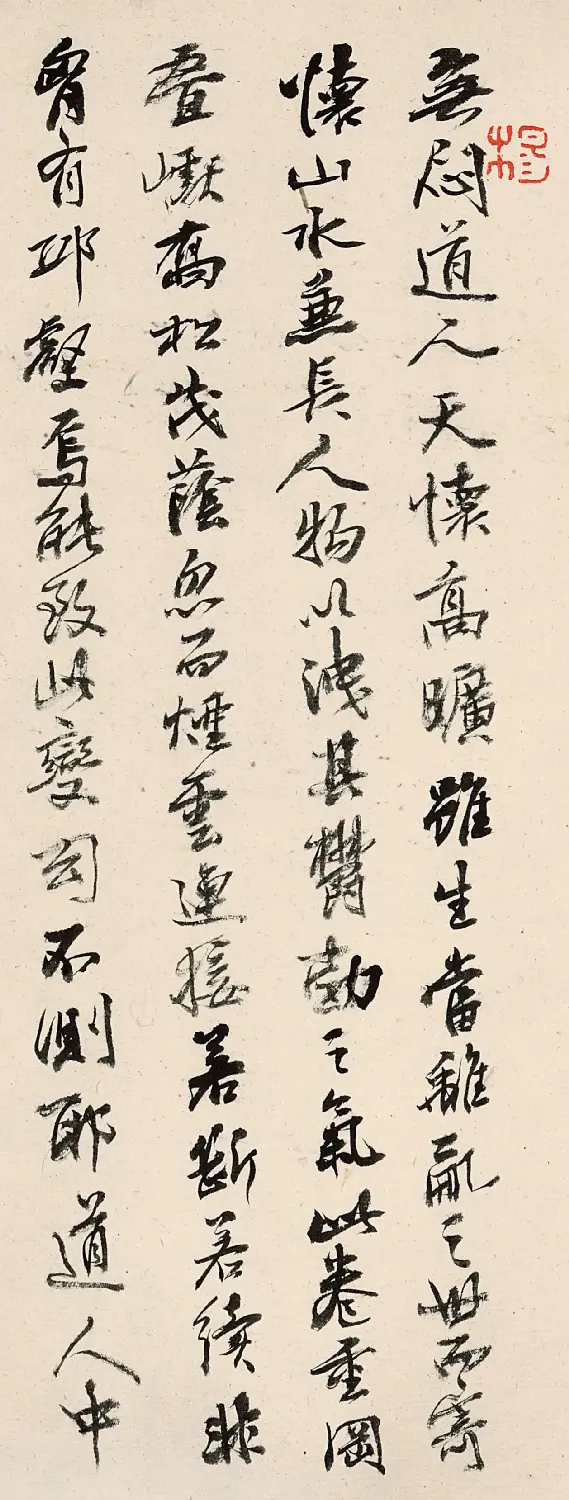 無悶道人天懷高曠雖生當離亂之世而寄
懷山水兼長人物以洩其鬱勃之氣此卷重岡
疊巘喬松茂蔭忽而煙雲連接若斷若續非
胷有邱壑焉能致此變幻不測耶道人中